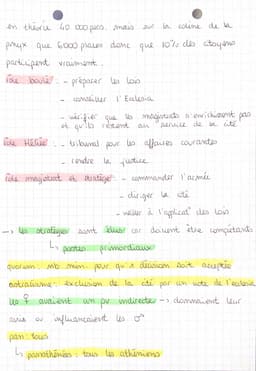 en théorie 40 000 pers. mais sur la colline de la
pnyx que 6000 places donc que 10% des citoyens
participent vraiment.
rôle boulè : - préparer les lois
- conseiller l'Ecclésia
- vérifier que les magistrats s'enrichissent pas
et qu'ils restent au service de la cité
rôle Héliée : - tribunal pour les affaires courantes
- rendre la justice
rôle magistrat et stratège : - commander l'armée
- diriger la cité
- veiller à l'applicat° des lois
→ les stratèges sont élus car doivent être compétants
↳ postes primordiaux
quorum : nb min. pour qu'1 décision soit acceptée
ostracisme : exclusion de la cité par un vote de l'eclesia
les ♀ avaient un pv indirecte → donnaient leur
avis ou influencaient les ♂
pan : tous
↳ panathénées : tous les athéniens